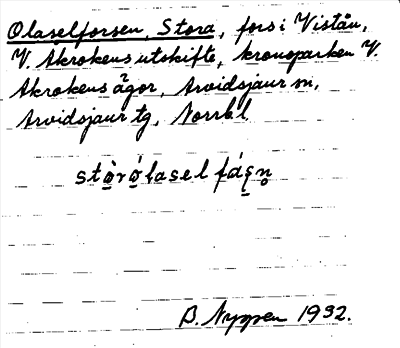 Olaselforsen, Stora, fors i Vistån,
V. Akrokens utskifte, kronoparken V.
Akrokens ägor, Arvidsjaur sn,
Arvidsjaur tg, Norrb l
stò̱ró̱lasel fás̱n̥
B. Nygren 1932.